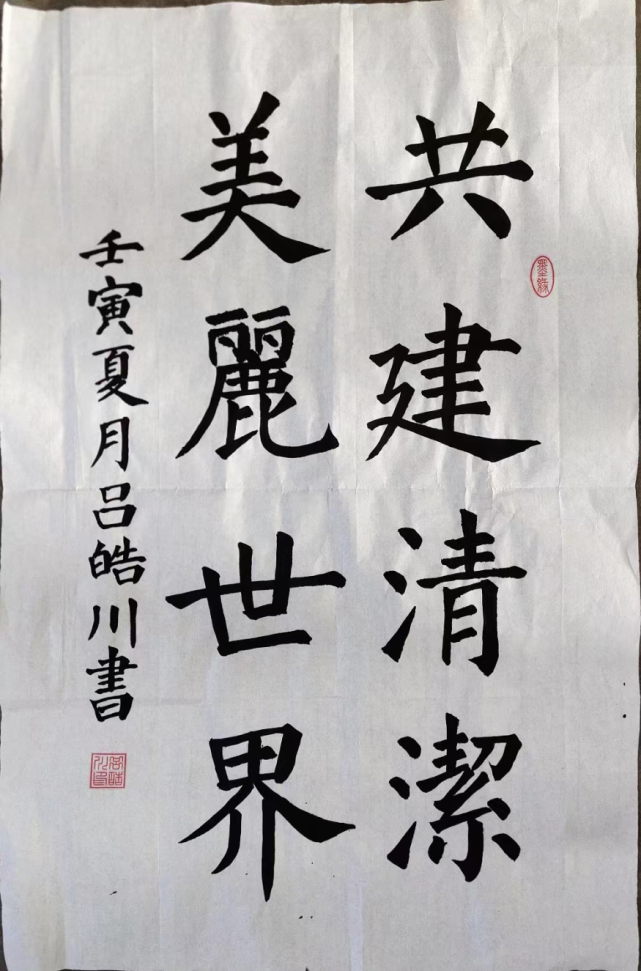 共建清潔
美麗世界
壬寅夏月吕皓川書